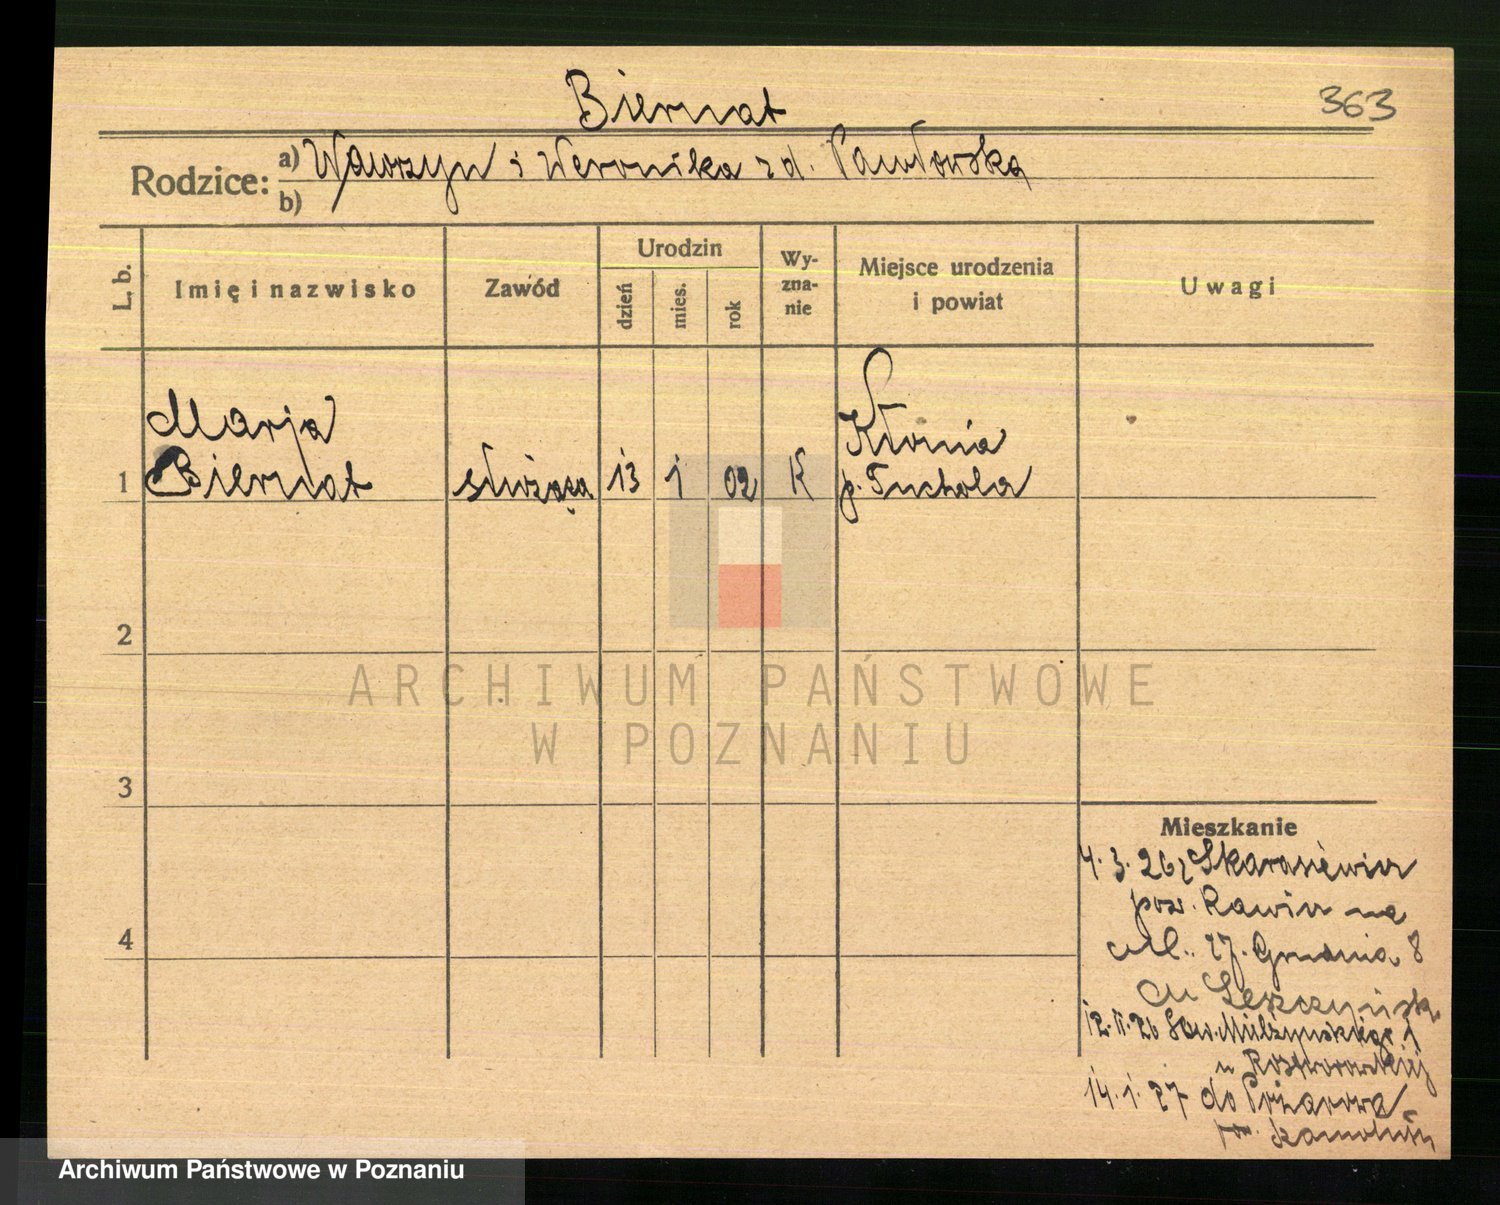 Biernat
363
Rodzice: a) Wawrzyn i Weronika zd. Pawłowska
b)
L. b. Imię i nazwisko Zawód Urodzin dzień mies. rok Wy-zna-nie Miejsce urodzenia i powiat Uwagi
Marja Kłonia
1 Biernat służąca 13 1 02 K p. Tuchola
2
3
4
Mieszkanie
4.3.26 z Skarasiewic
pow. Rawicz na
27. Grudnia 8
u Leszczyńsk.
12. 26 Sew. Mielżyńskiego 1
u Rostworowskiej
14.1.27 do
pow.
ARCHIWUM PAŃSTWOWE
W POZNANIU
Archiwum Państwowe w Poznaniu